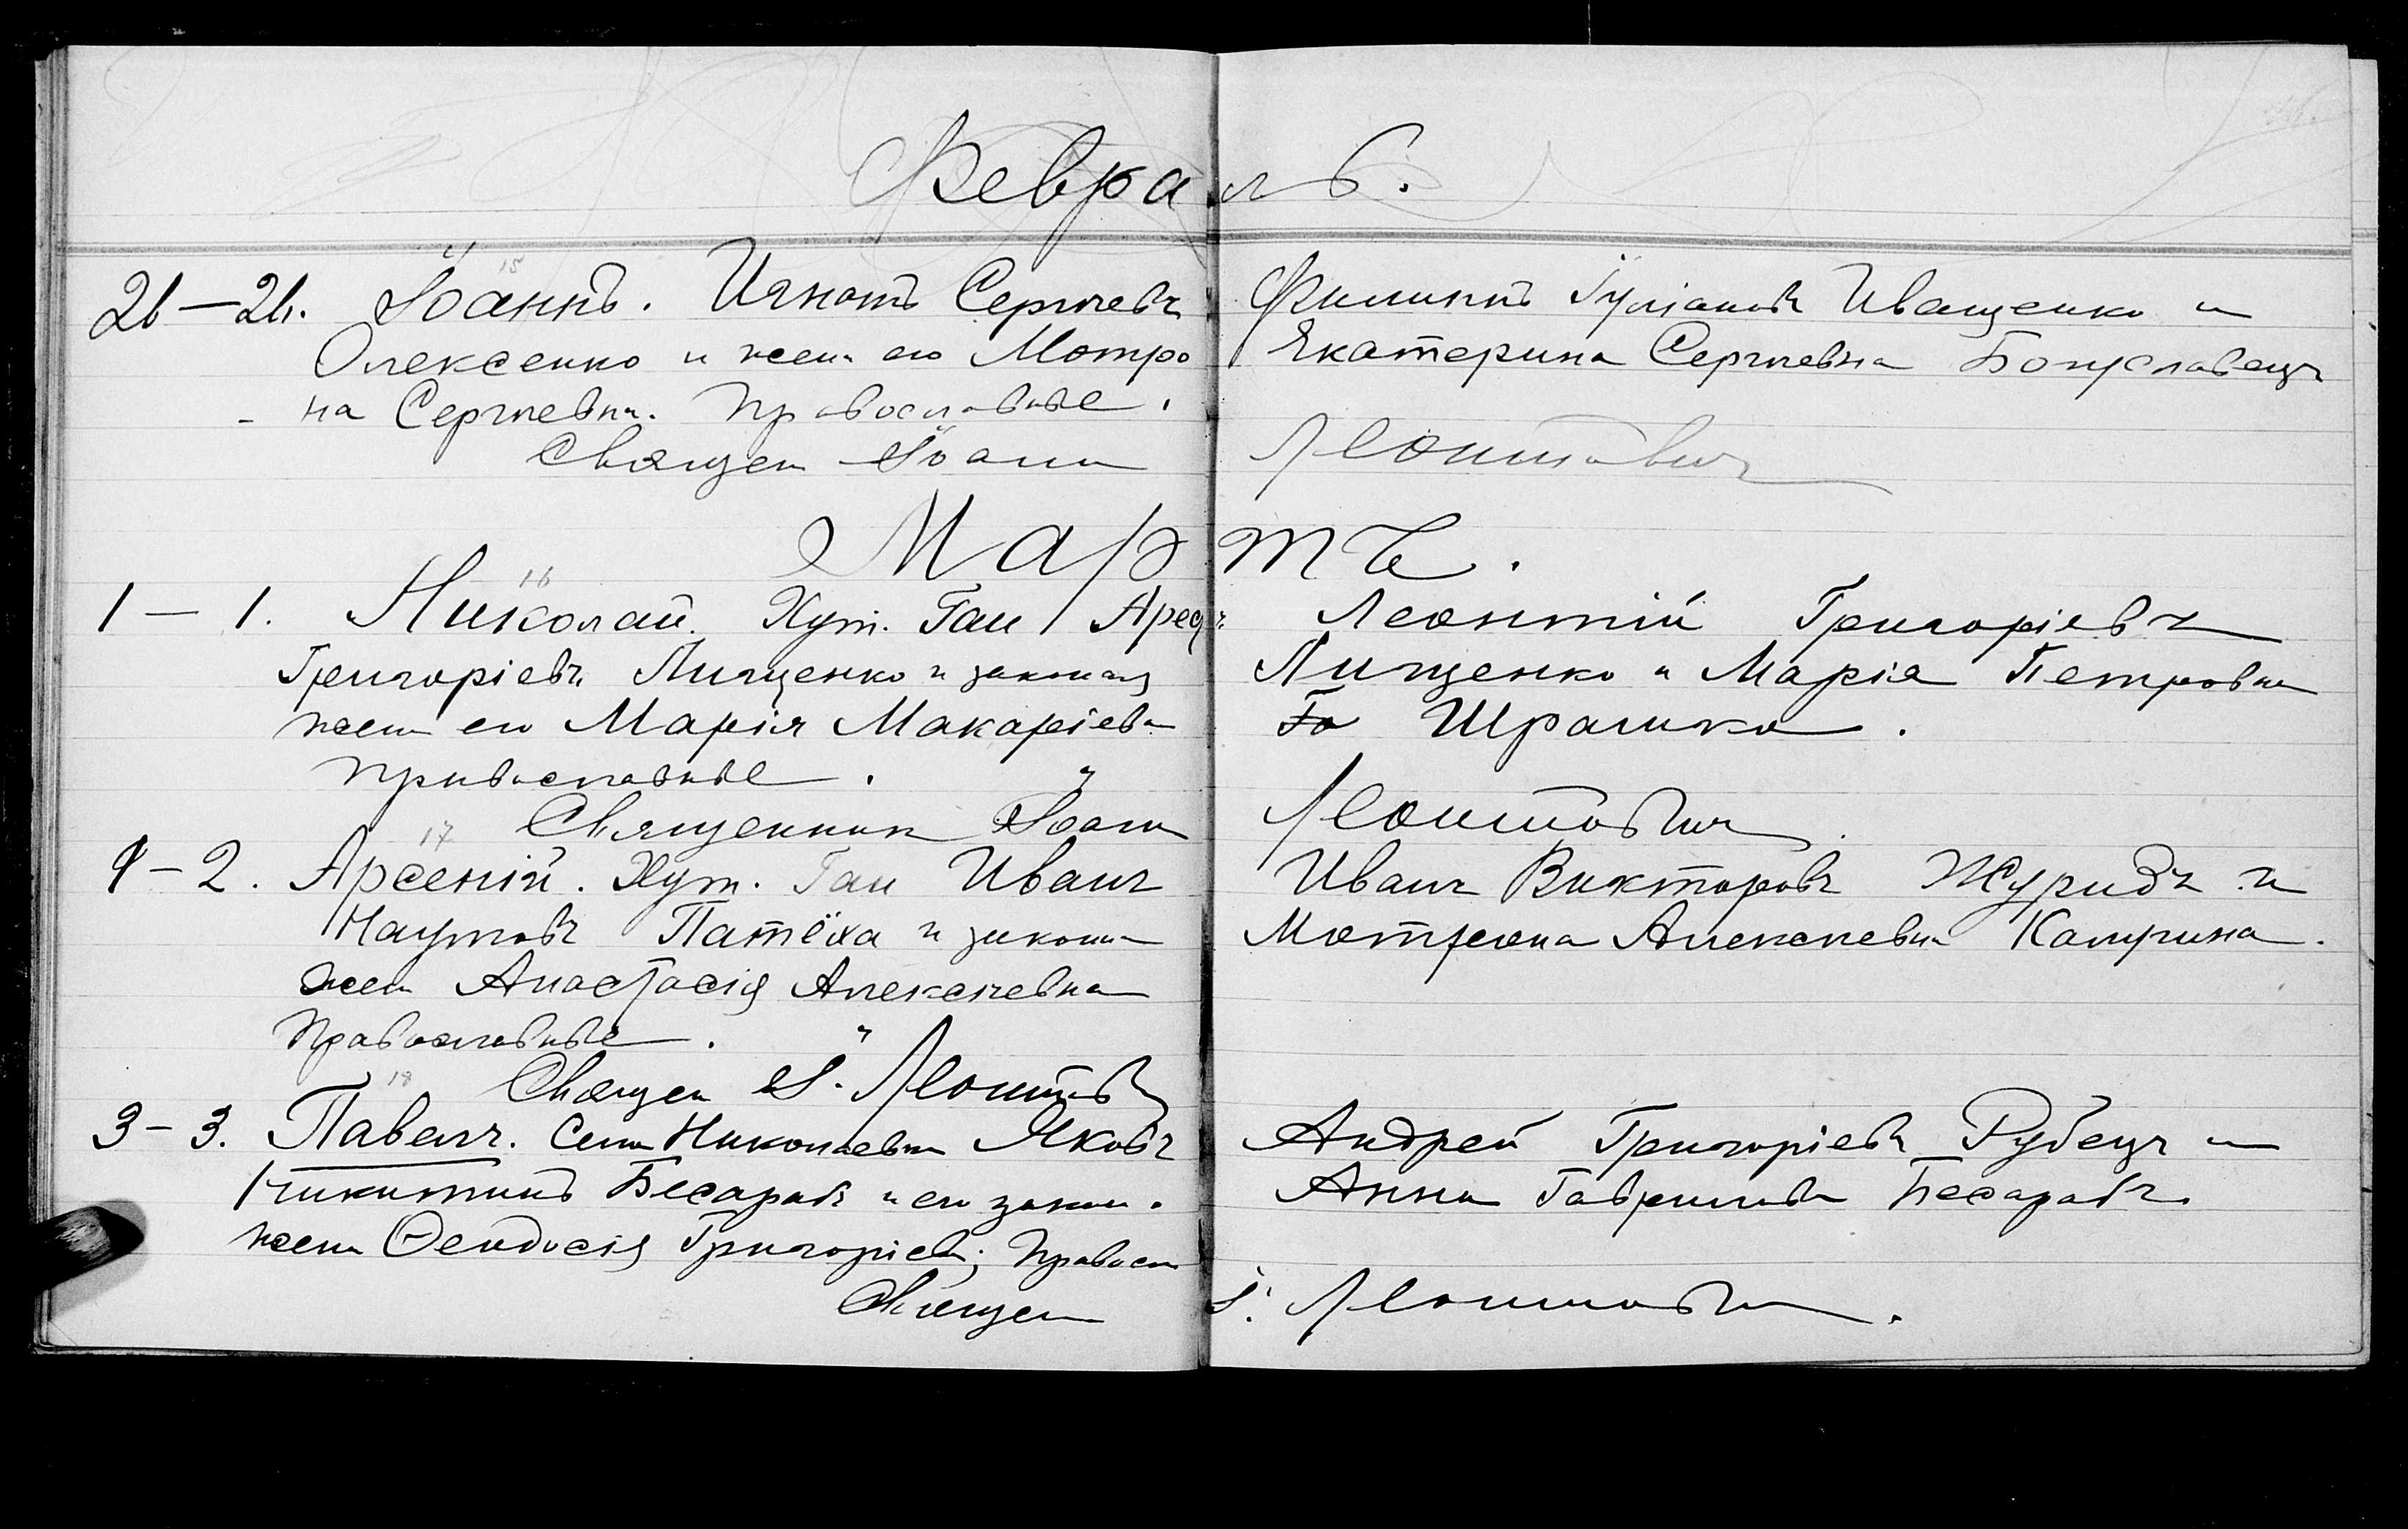 Февраль.
15
26 – 26. Іоаннъ. Игнатъ Сергѣевъ
Олексенко и жен. его Матро
на Сергѣевна. Православные.
Священ Іоанн
Филиппъ Іуліановъ Иващенко и
Екатерина Сергѣевна Богуславецъ
Леонтович
Мартъ.
16
1 – 1. Николай. Хут. Гаи
Григоріевъ Лищенко и законная
жен его Марія Макаріева
православные.
Священник Іоанн
Леонтій Григоріевъ
Лищенко и Марія Петровна
Шрамко.
Леонтович
17
1 – 2. Арсеній. Хут. Гаи Иванъ
Наумовъ Патёха и законн
жен Анастасія Алексѣевна
Православные.
Священ І. Леонтов
Иванъ Викторовъ Журидъ и
Мотрона Алексѣевна Калугина.
18
3 – 3. Павелъ. Села Николаевки Яковъ
Никитинъ Бесарабъ и его закон.
жена Ѳеодосія Григоріев; Правосл
Священ
Андрей Григоріевъ Рубецъ и
Анна Гаврилова Бесарабъ.
І. Леонтович.